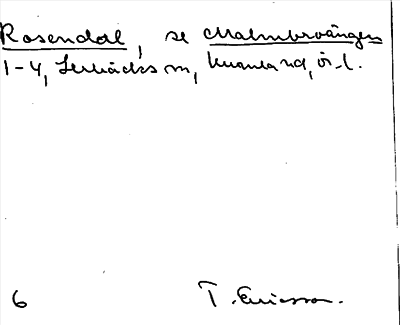 Rosendal, se Malmbrovången
1-4, Lerbäcks sn, Kumla hd, ör. l.
6 T. Ericsson.